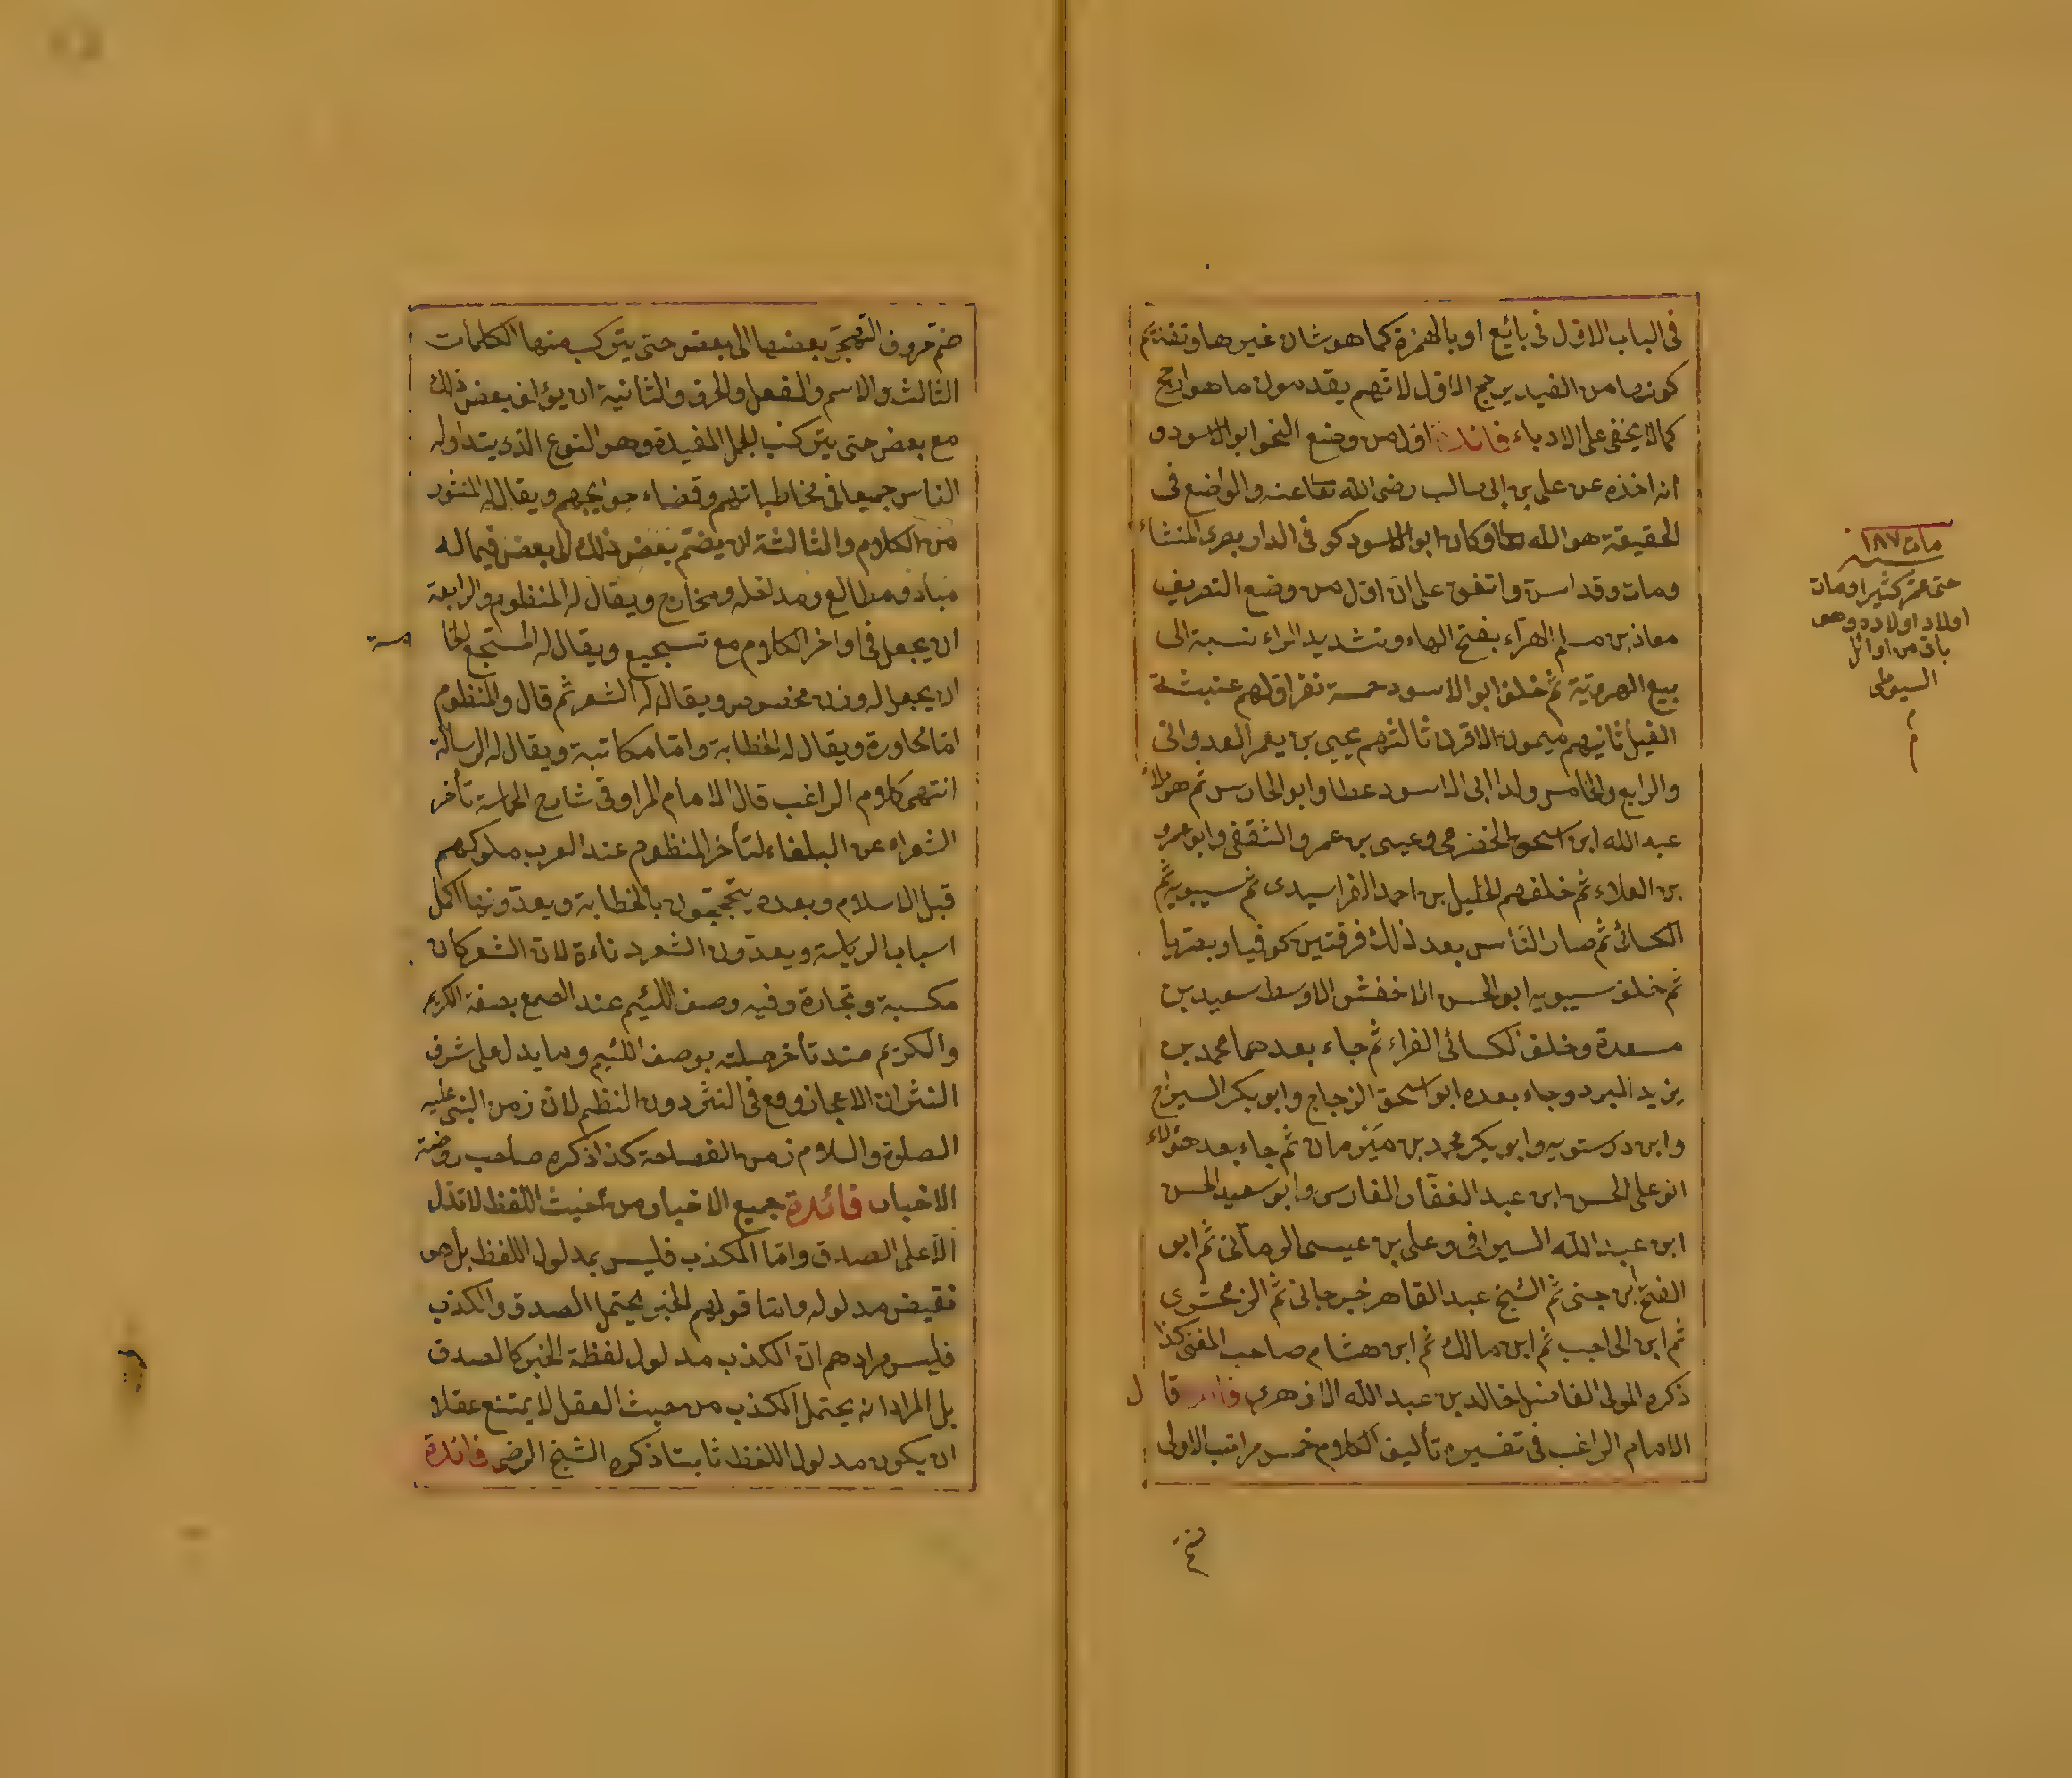 فى الباب الاول فى بائع او بالهمزة كما هو شان غيرها وتقديم
كونها من الفيد يرجح الاول لانهم يقدمون ما هو ارجح
كما لا يخفى على الادباء فائدة اول من وضع النحو ابو الاسود و
انه اخذه عن على بن ابى طالب رضى الله تعا عنه والواضع فى
الحقيقة هو الله تعا وكان ابو الاسود كوفى الدار بصرى المنشاء
ومات وقد اسن واتفق على ان اول من وضع التصريف
معاذ بن مسلم الهرآء بفتح الهاء وتشديد الراء نسبة الى
بيع الهروية ثم خلف ابو الاسود خمسة نفر اولهم عنبسة
الفيل ثانيهم ميمون الاقرن ثالثهم يحيى بن يعمر العدوانى
والرابع والخامس ولدا ابى الاسود عطا وابو الحارس ثم هؤلاء
عبد الله ابن اسحق الحضرمى وعيسى بن عمرو الثقفى وابو عمرو
بن العلاء ثم خلفهم الخليل بن احمد الفراسيدى ثم سيبويه ثم
الكسائى ثم صار الناس بعد ذلك فرقتين كوفيا وبصريا
ثم خلف سيبويه ابو الحسن الاخفش الاوسط سعيد بن
مسعدة وخلف الكسائى الفراء ثم جاء بعدهما محمد بن
يزيد المبرد وجاء بعده ابو اسحق الزجاج وابو بكر السراج
وابن درستويه وابو بكر محمد بن مَبْرمان ثم جاء بعد هؤلاء
ابو على الحسن ابن عبد الغفّار الفارسى وابو سعيد الحسن
ابن عبد الله السيرافى وعلى بن عيسى الرمانى ثم ابو
الفتح ابن جنى ثم الشيخ عبد القاهر الجرجانى ثم الزمخشرى
ثم ابن الحاجب ثم ابن مالك ثم ابن هشام صاحب المغنى كذا
ذكره المولى الفاضل خالد بن عبد الله الازهرى فائدة قال
الامام الراغب فى تفسيره تأليف الكلام خمس مراتب الاولى
مات ١٨٧
سنه
حتى عمّر كثيرا ومات
اولاد اولاده وهو
باق من اوائل
السيوطى
م
ضم حروف التهجى بعضها الى بعض حتى يتركب منها الكلمات
الثالث والاسم والفعل والحرف والثانية ان يؤلف بعض ذلك
مع بعض حتى يتركب الجمل المفيدة وهو النوع الذى يتداوله
الناس جميعا فى مخاطباتهم وقضاء حوايجهم ويقال له المنثور
من الكلام والثالثة ان يضمّ بعض ذلك الى بعض فيما له
مباد ومطالع ومداخل ومخارج ويقال له المنظوم والرابعة
ان يجعل فى اواخر الكلام مع تسجيع ويقال له المسجّع الخا
مسة
ان يجعل له وزن مخصوص ويقال له الشعر ثم قال والمنظوم
امّا محاورة ويقال له الخطابة وامّا مكاتبة ويقال له الرسالة
انتهى كلام الراغب قال الامام المرزوقى شارح الحماسة تأخر
الشعراء عن البلغاء لتأخر المنظوم عند العرب ملوكهم
قبل الاسلام وبعده يتجحّجون بالخطابة ويعدّونها اكمل
اسباب الرياسة ويعدّون الشعر دناءة لان الشعر كان
مكسبة وتجارة وفيه وصف اللئيم عند الطمع بصفة الكريم
والكريم عند تأخر صلته بوصف اللئيم ومما يدل على شرف
النثر ان الاعجاز وقع فى النثر دون النظم لان زمن النبى عليه
الصلوة والسلام زمن الفصاحة كذا ذكره صاحب روضة
الاخبار فائدة جميع الاخبار من حيث اللفظ لا تدل
الا على الصدق وامّا الكذب فليس بمدلول اللفظ بل هو
نقيض مدلوله وامّا قولهم الخبر يحتمل الصدق والكذب
فليس مرادهم ان الكذب مدلول لفظة الخبر كالصدق
بل المراد انه يحتمل الكذب من حيث العقل لا يمتنع عقلا
ان يكون مدلول اللفظ ثابتا ذكره الشيخ الرضى فائدة